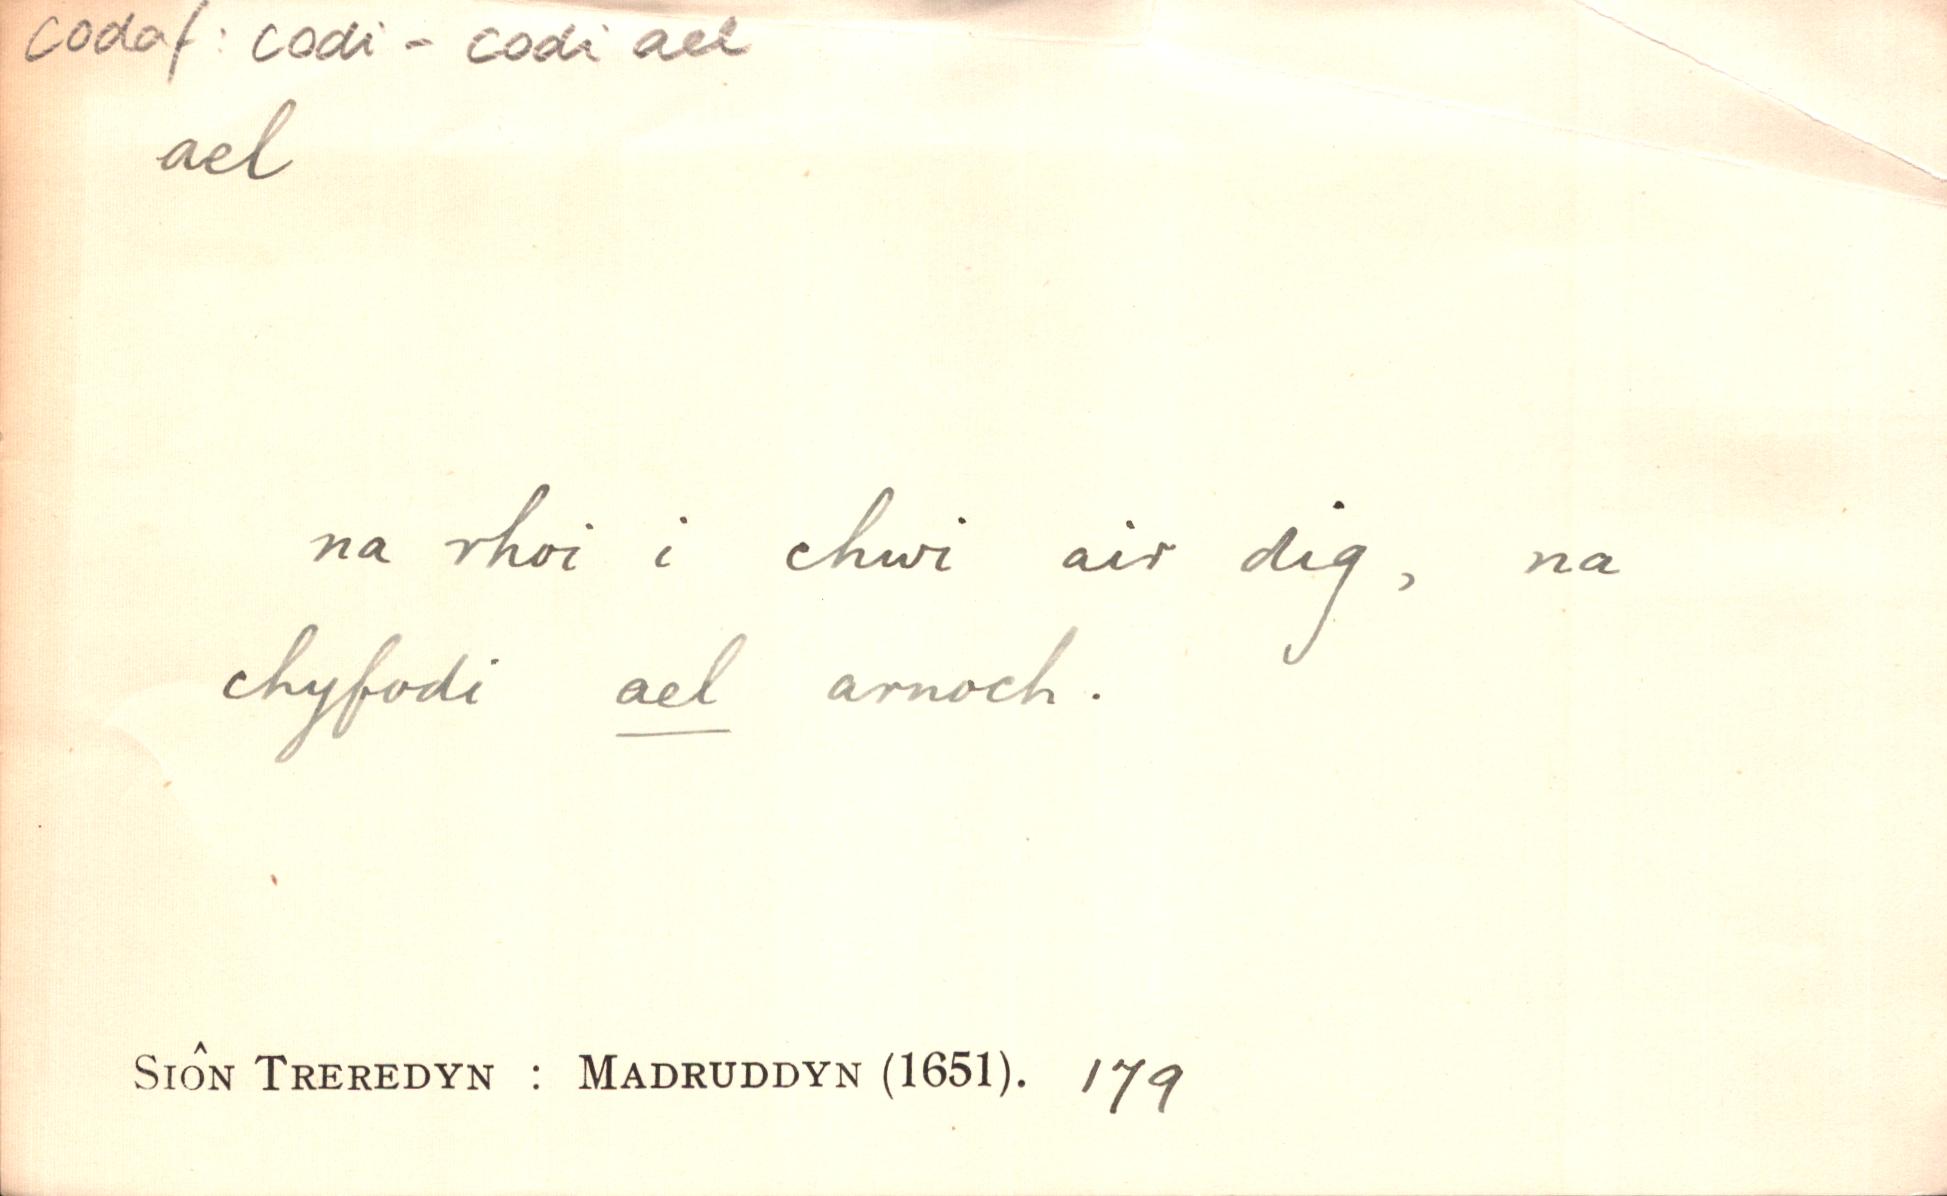 codaf: codi - codi ael
ael
na rhoi i chwi air dig, na
chyfodi ael arnoch.
SIÔN TREREDYN : MADRUDDYN (1651). 179